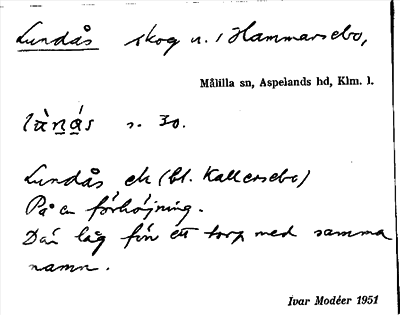 Lundås skog u. i Hammarsebo,
Målilla sn, Aspelands hd, Klm. l.
s. 30.
Lundås ek (bl. Kallersebo)
På en förhöjning.
Där låg förr ett torp med samma
namn.
Ivar Modéer 1951